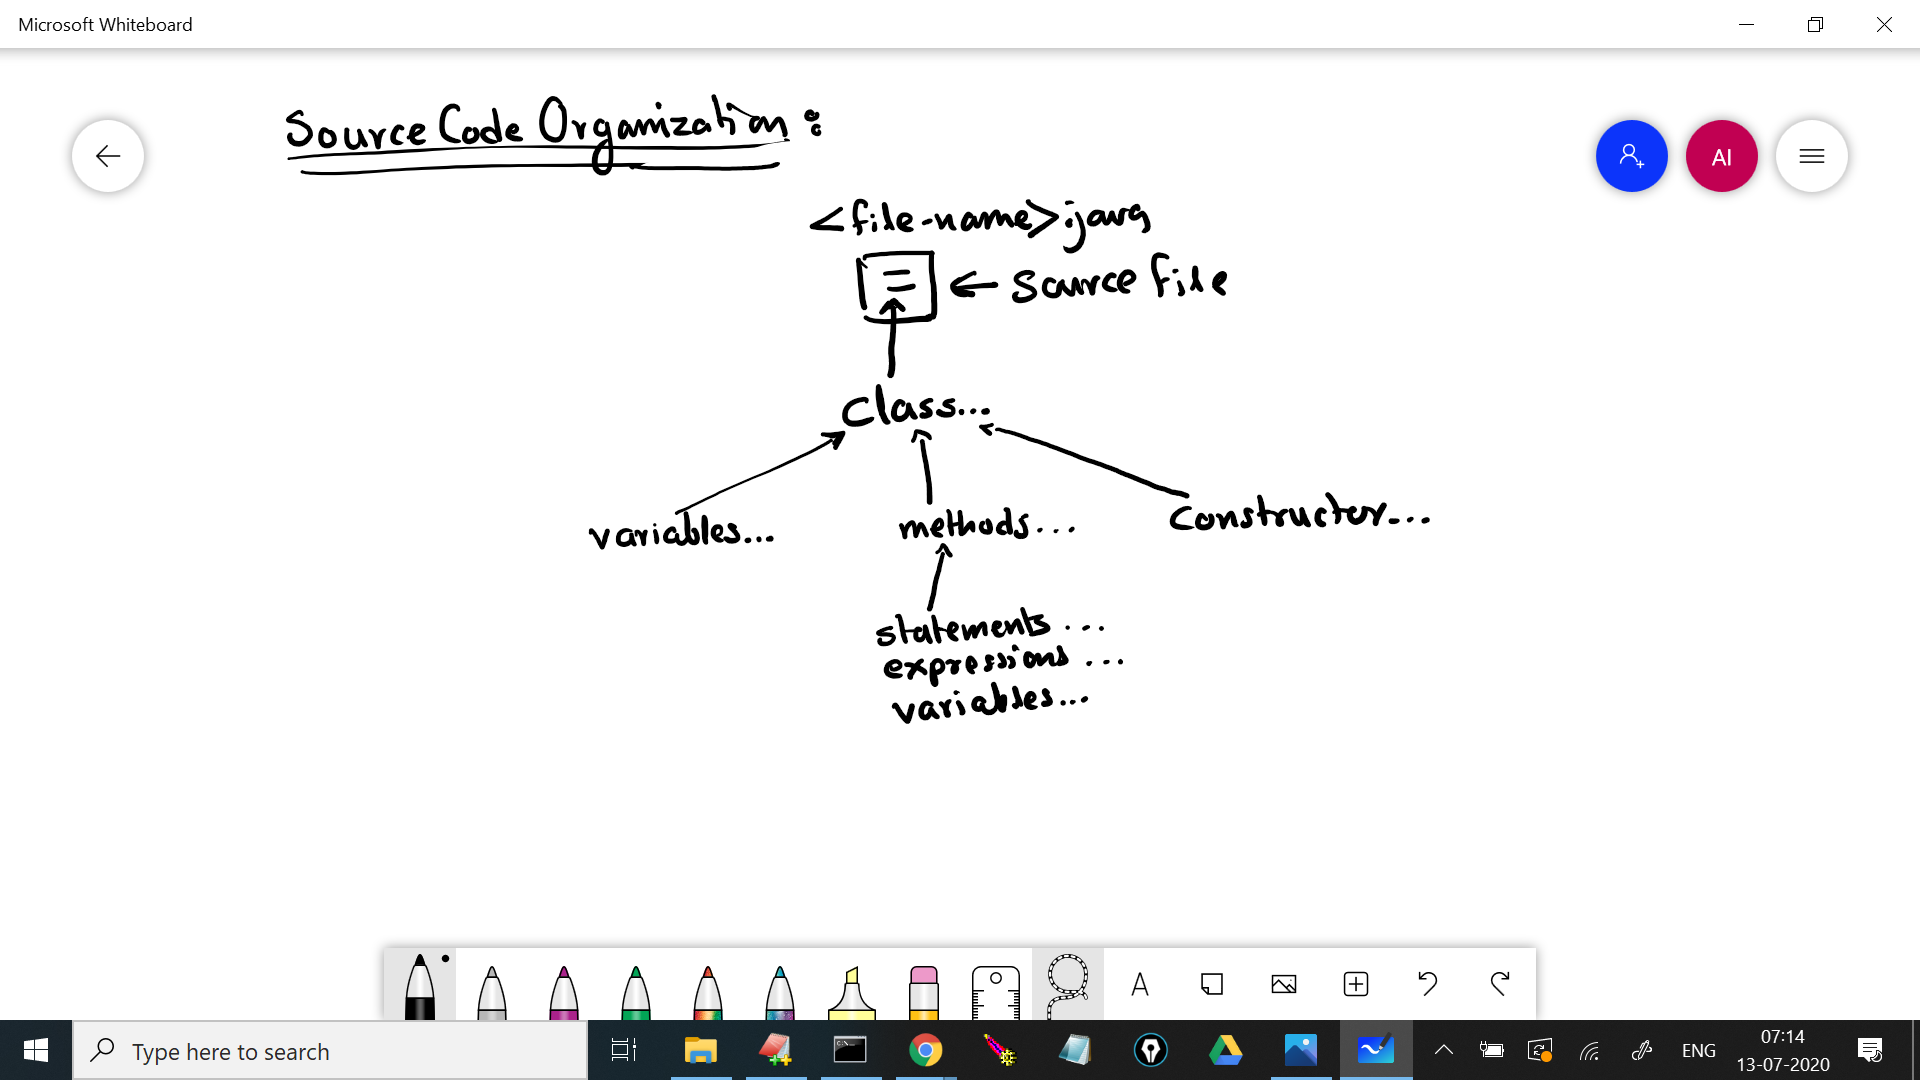 Microsoft Whiteboard
Source Code Organization :
AI
<file-name>.java
← Source file
Class...
variables...
methods...
Constructor...
statements ...
expressions ...
variables...
A
Type here to search
ENG
07:14
13-07-2020